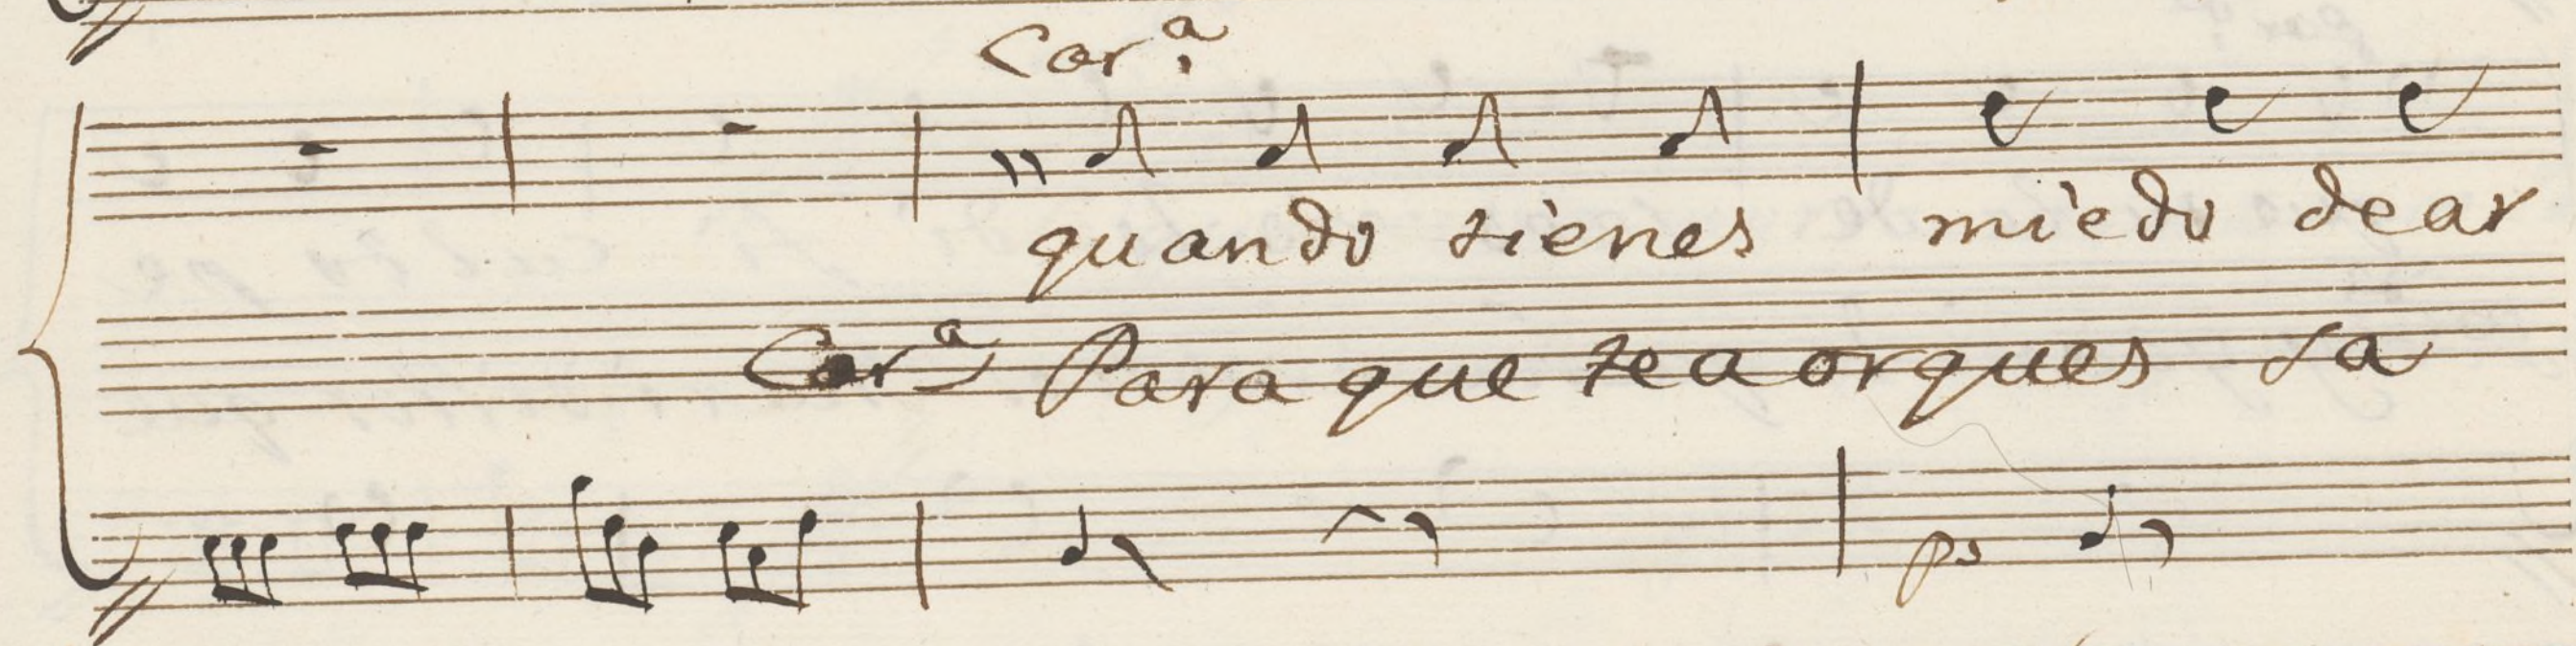 Car.ª
quando tienes miedo dear
Carª Para que te aorques la
pº